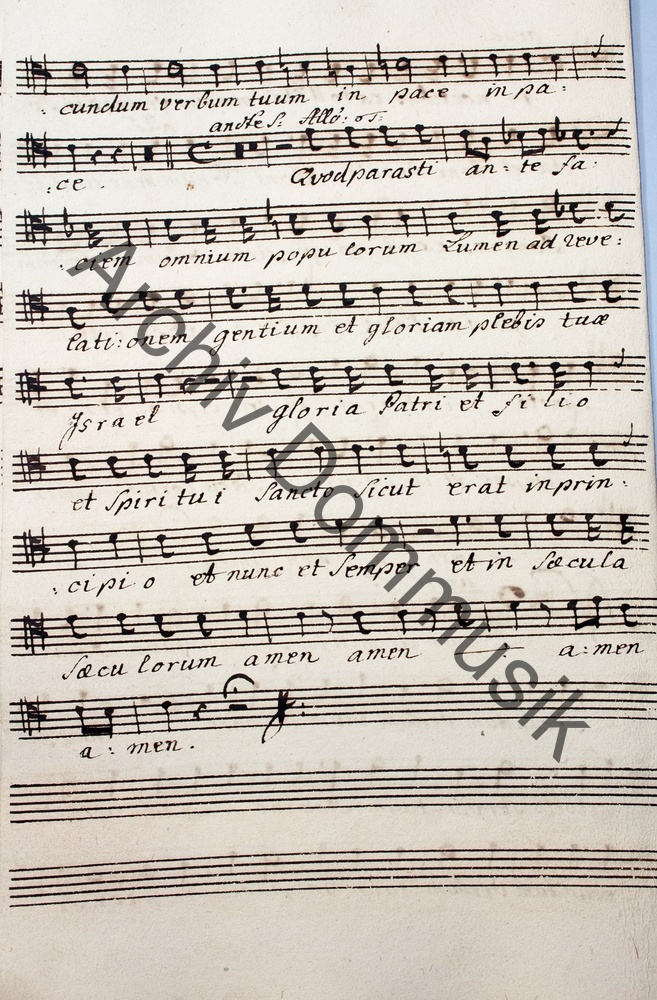 : cundum verbum tuum in pace in pa:
:ce. Quod parasti an: te fa:
: ciem omnium popu lorum Lumen ad reve:
lati: onem gentium et gloriam plebis tuæ
Israel gloria Patri et fi lio
et Spiri tu i Sancto Sicut erat in prin:
: cipi o et nunc et Semper et in Sæcula
Sæcu lorum amen amen — a: men
a: men.
Archiv Dommusik